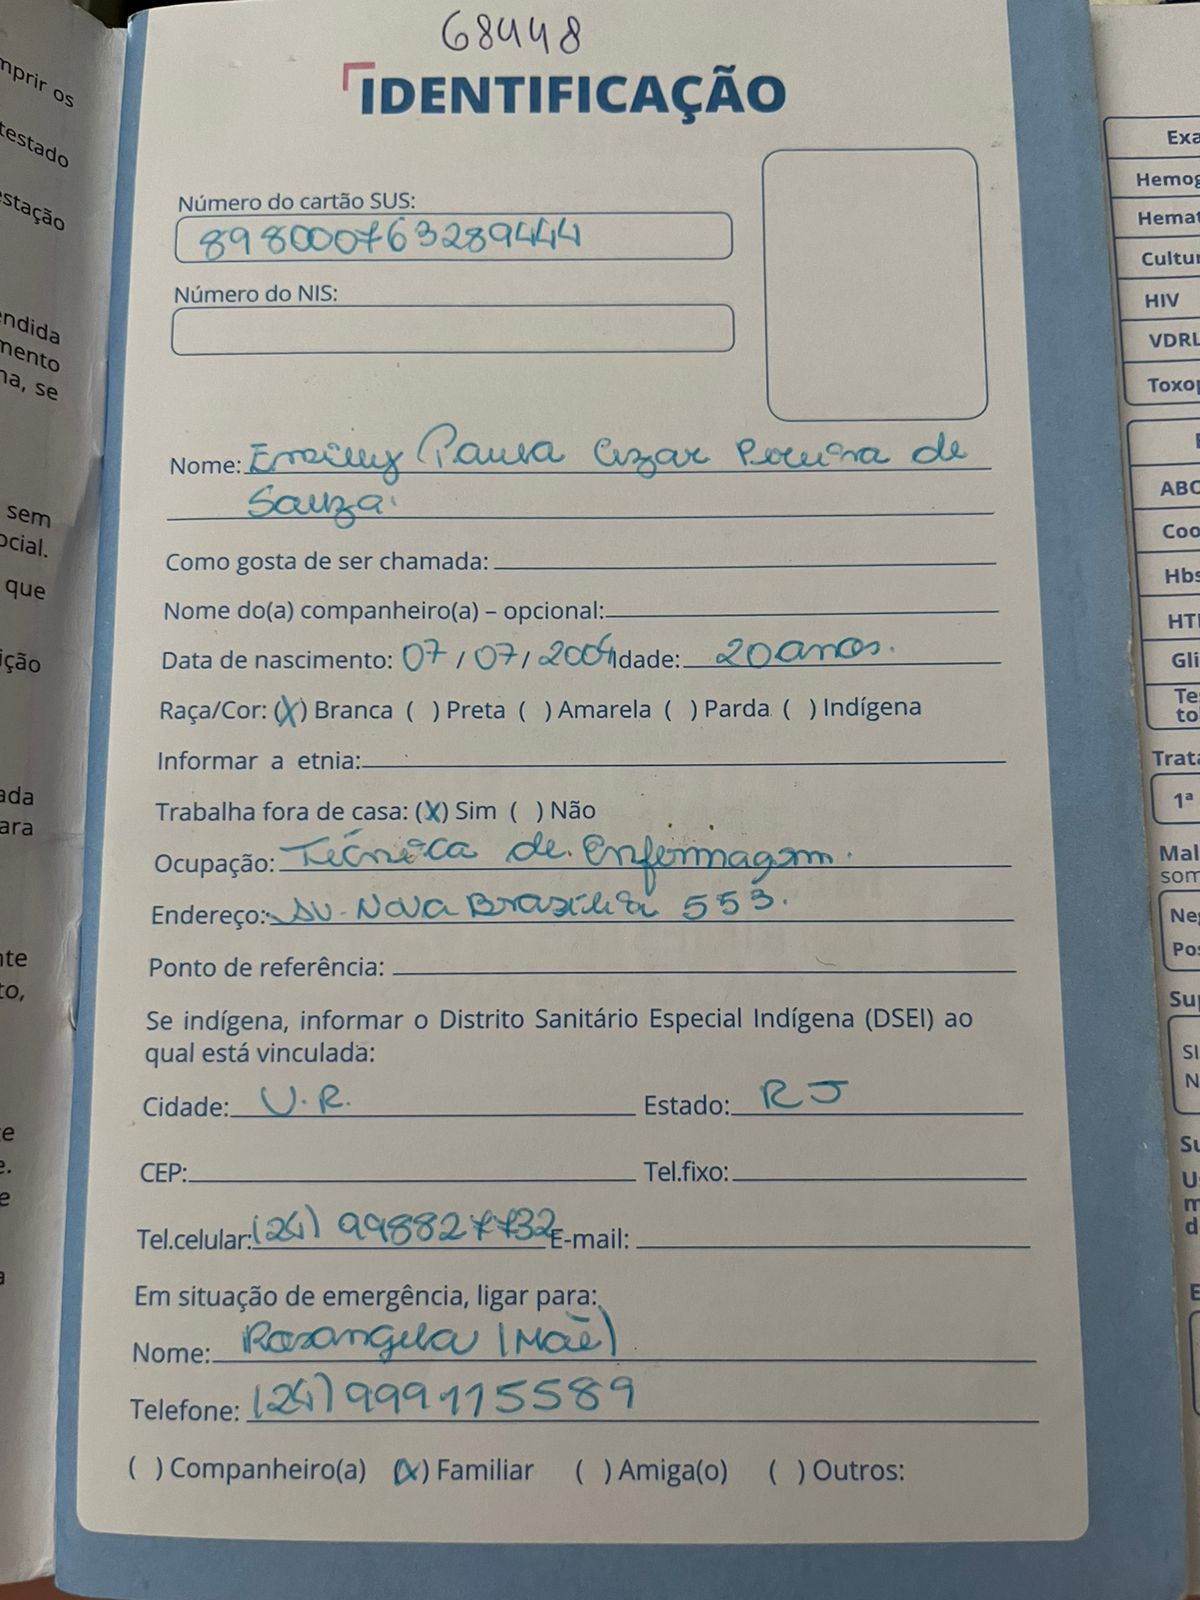 mprir os
testado
estação
endida
mento
na, se
sem
ocial.
que
ição
ada
ara
nte
to,
te
e.
e
a
68448
IDENTIFICAÇÃO
Número do cartão SUS:
898000763289444
Número do NIS:
Nome: Emilly Paula Cezar Pereira de
Souza.
Como gosta de ser chamada:
Nome do(a) companheiro(a) – opcional:
Data de nascimento: 07 / 07 / 2004 Idade: 20 anos.
Raça/Cor: (X) Branca ( ) Preta ( ) Amarela ( ) Parda ( ) Indígena
Informar a etnia:
Trabalha fora de casa: (X) Sim ( ) Não
Ocupação: Técnica de Enfermagem.
Endereço: Av. Nova Brasília 553.
Ponto de referência:
Se indígena, informar o Distrito Sanitário Especial Indígena (DSEI) ao
qual está vinculada:
Cidade: V.R. Estado: RJ
CEP: Tel.fixo:
Tel.celular: (24) 998827732 E-mail:
Em situação de emergência, ligar para:
Nome: Rosangela (Mãe)
Telefone: (24) 999115589
( ) Companheiro(a) (X) Familiar ( ) Amiga(o) ( ) Outros:
Exa
Hemog
Hemat
Cultur
HIV
VDRL
Toxop
ABO
Coo
Hbs
HTL
Gli
Te
to
Trata
1ª
Mal
som
Neg
Pos
Sup
SI
N
Su
U
m
d
E